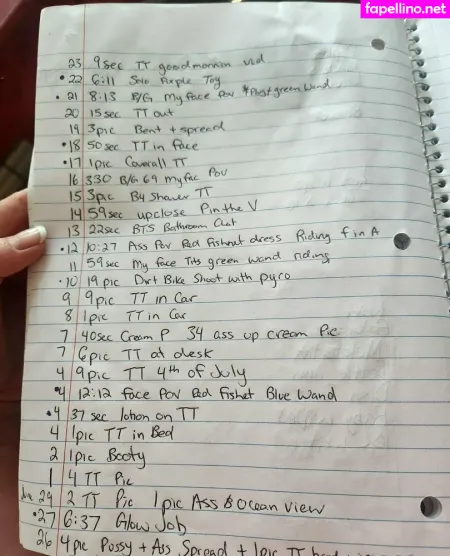 fapellino.net
23 9sec TT goodmornin vid
•22 6:11 Solo Purple Toy
•21 8:13 B/G My face Pov *Phost green Wand
20 15sec TT out
19 3pic Bent + spread
•18 50sec TT in face
•17 1pic Coverall TT
16 3:30 B/G 69 my fac Pov
15 3pic By Shower TT
14 59sec upclose P in the V
13 22sec BTS Bathroom Chat
•12 10:27 Ass Pov Red Fishnut dress Riding f in A
11 59sec My face Tits green wand riding
•10 19pic Dirt Bike Shoot with pyro
9 9pic TT in Car
8 1pic TT in Car
7 40sec Cream P 34 ass up cream Pic
7 6pic TT at desk
4 9pic TT 4th of July
•4 12:12 face POV Red Fishet Blue Wand
•4 37 sec lotion on TT
4 1pic TT in Bed
2 1pic Booty
1 4 TT Pic
29 2 TT Pic 1pic Ass & Ocean view
•27 6:37 Glow Job
26 4pic Pussy + Ass Spread + 1pic TT